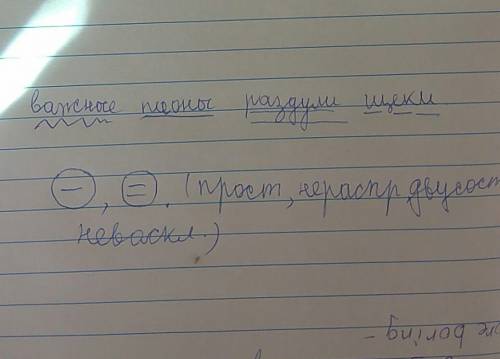 важные пионы раздули щеки
⊖, ⊜. (прост, нераспр, двусост
неваскл.)